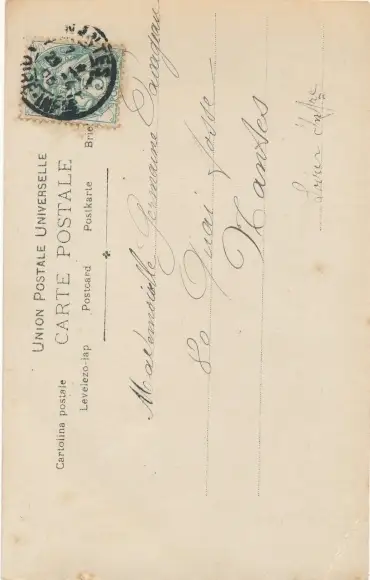 UNION POSTALE UNIVERSELLE
CARTE POSTALE
Cartolina postale
Levelezo-lap Postcard Postkarte Brie
NANTES
Mademoiselle Germaine
80 Quai fosse
Nantes
Loire Infre